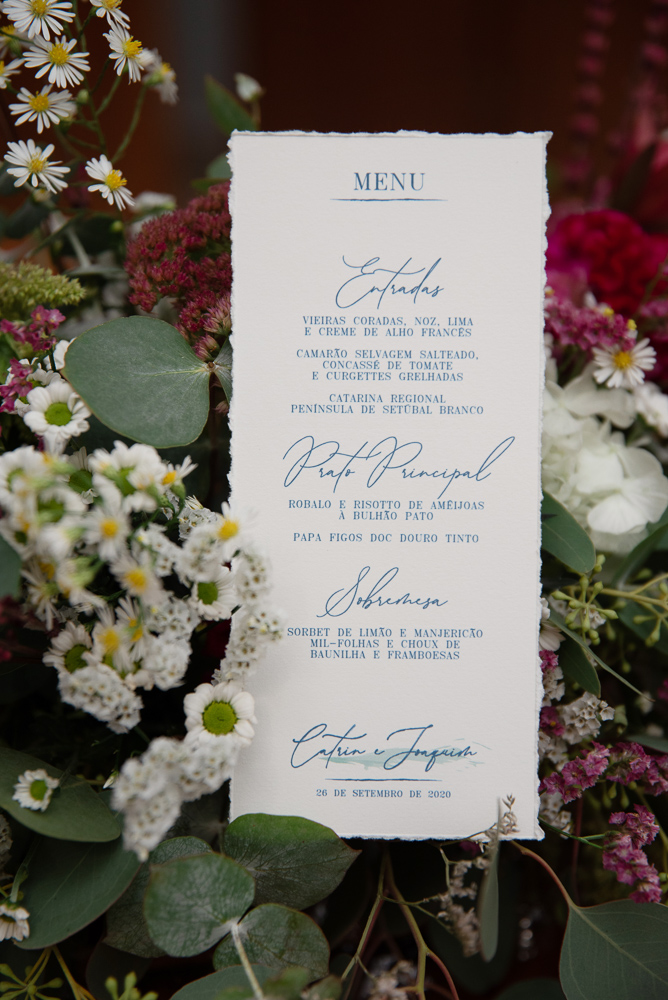 MENU
Entradas
VIEIRAS CORADAS, NOZ, LIMA
E CREME DE ALHO FRANCÊS
CAMARÃO SELVAGEM SALTEADO,
CONCASSÉ DE TOMATE
E CURGETTES GRELHADAS
CATARINA REGIONAL
PENINSULA DE SETÚBAL BRANCO
Prato Principal
ROBALO E RISOTTO DE AMÊIJOAS
À BULHÃO PATO
PAPA FIGOS DOC DOURO TINTO
Sobremesa
SORBET DE LIMÃO E MANJERICÃO
MIL-FOLHAS E CHOUX DE
BAUNILHA E FRAMBOESAS
Catrin e Joaquim
26 DE SETEMBRO DE 2020